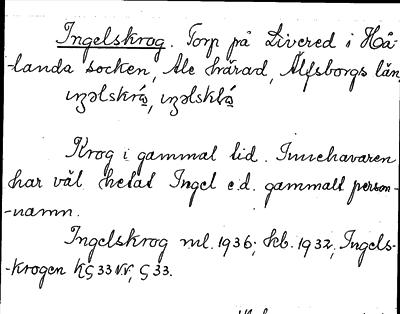 Ingelskrog. Torp på Livered i Hå-
-landa socken, Ale härad, Älfsborgs län,
ıŋəlskrå̲, ıŋəlsklå̲
Krog i gammal tid. Innehavaren
har väl hetat Ingel e.d. gammalt person-
-namn.
Ingelskrog ml. 1936; kb. 1932, Ingels-
-krogen KG 33 NV, G 33.